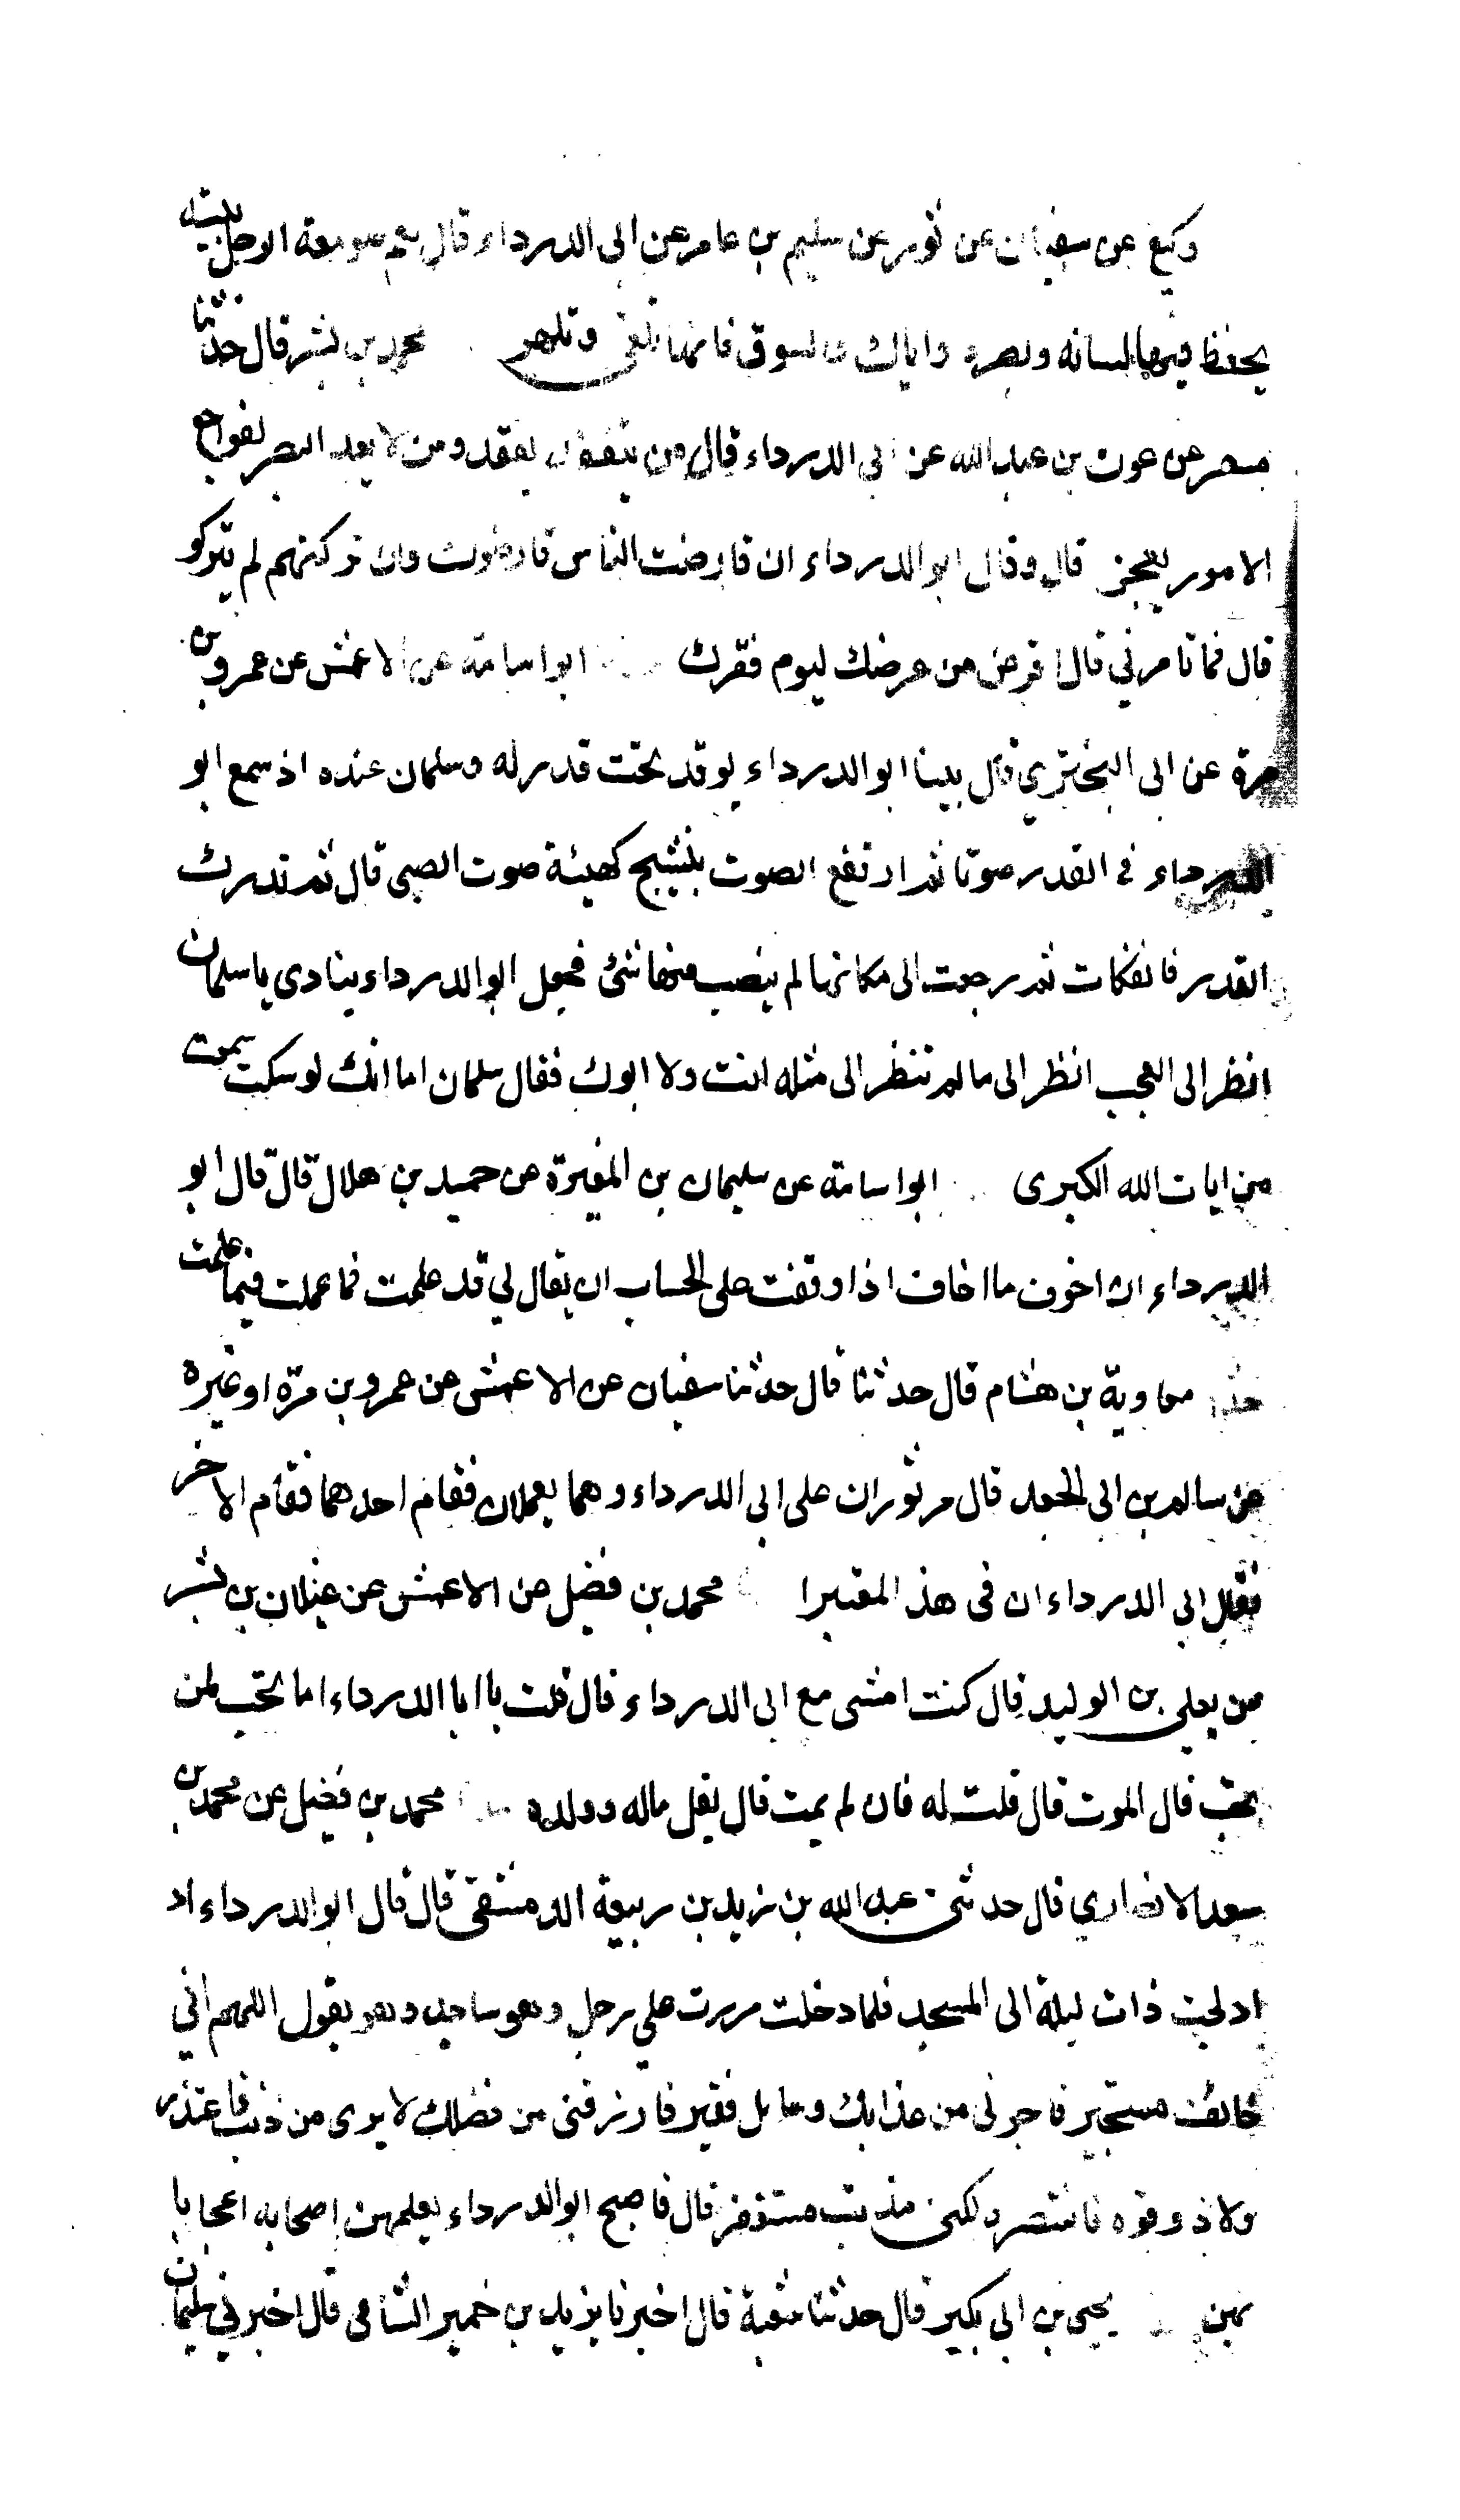 وكيع عن سفيان عن ثور عن سليم بن عامر عن ابى الدرداء قال نعم صومعة الرجل بيته
يحفظ فيها لسانه وبصره واياك والسوق فانها تلغى وتلهى محمد بن بشر قال حدثنا
مسعر عن عون بن عبد الله عن ابى الدرداء قال من يتفقد يفقد ومن لا يعد الصبر لفواجع
الامور يعجز قال وقال ابو الدرداء ان قارضت الناس قارضوك وان تركتهم لم يتركوك
قال فما تامرني قال اقرض من عرضك ليوم فقرك ابو اسامة عن الاعمش عن عمرو بن
مرة عن ابى البختري قال بينا ابو الدرداء يوقد تحت قدر له وسلمان عنده اذ سمع ابو
الدرداء فى القدر صوتا ثم ارتفع الصوت بنشيج كهيئة صوت الصبى قال ثم ندرت
القدر فانفكات ثم رجعت الى مكانها لم ينصب منها شئ فجعل ابو الدرداء ينادى يا سلمان
انظر الى العجب انظر الى ما لم تنظر الى مثله انت ولا ابوك فقال سلمان اما انك لو سكت سمعت
من ايات الله الكبرى ابو اسامة عن سليمان بن المغيرة عن حميد بن هلال قال قال ابو
الدرداء ان اخوف ما اخاف اذا وقفت على الحساب ان يقال لي قد علمت فما عملت فيما علمت
حدثنا معاوية بن هشام قال حدثنا قال حدثنا سفيان عن الاعمش عن عمرو بن مرة او غيره
عن سالم بن ابى الجعد قال مر ثوران على ابى الدرداء وهما يعملان فقام احدهما فقام الاخر
فقال ابى الدرداء ان فى هذ المعتبرا محمد بن فضيل عن الاعمش عن غيلان بن بشر
عن يعلى بن الوليد قال كنت امشى مع ابى الدرداء قال قلت يا ابا الدرداء اما تحب لمن
تحب قال الموت قال قلت له فان لم يمت قال يقل ماله وولده محمد بن فضيل عن محمد بن
سعد الانصاري قال حدثنى عبد الله بن يزيد بن ربيعة الدمشقى قال قال ابو الدرداء اد
ادلجت ذات ليلة الى المسجد فلما دخلت مررت على رجل وهو ساجد وهو يقول اللهم انى
خائف مستجير فاجرنى من عذابك وسايل فقير فارزقنى من فضلك لا برى من ذنب فاعتذر
ولا ذو قوه فانتصر ولكن مذنب مستغفر قال فاصبح ابو الدرداء يعلمهن اصحابه اعجابا
بهن يحيى بن ابى بكير قال حدثنا شعبة قال اخبرنا يزيد بن خمير الشامى قال اخبرني سليمان